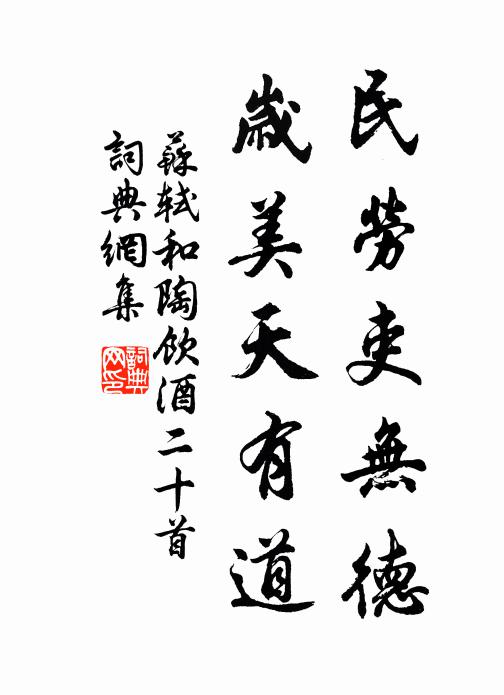 民勞吏無德
歲美天有道
蘇軾和陶飲酒二十首
詞典網集
詞典網印